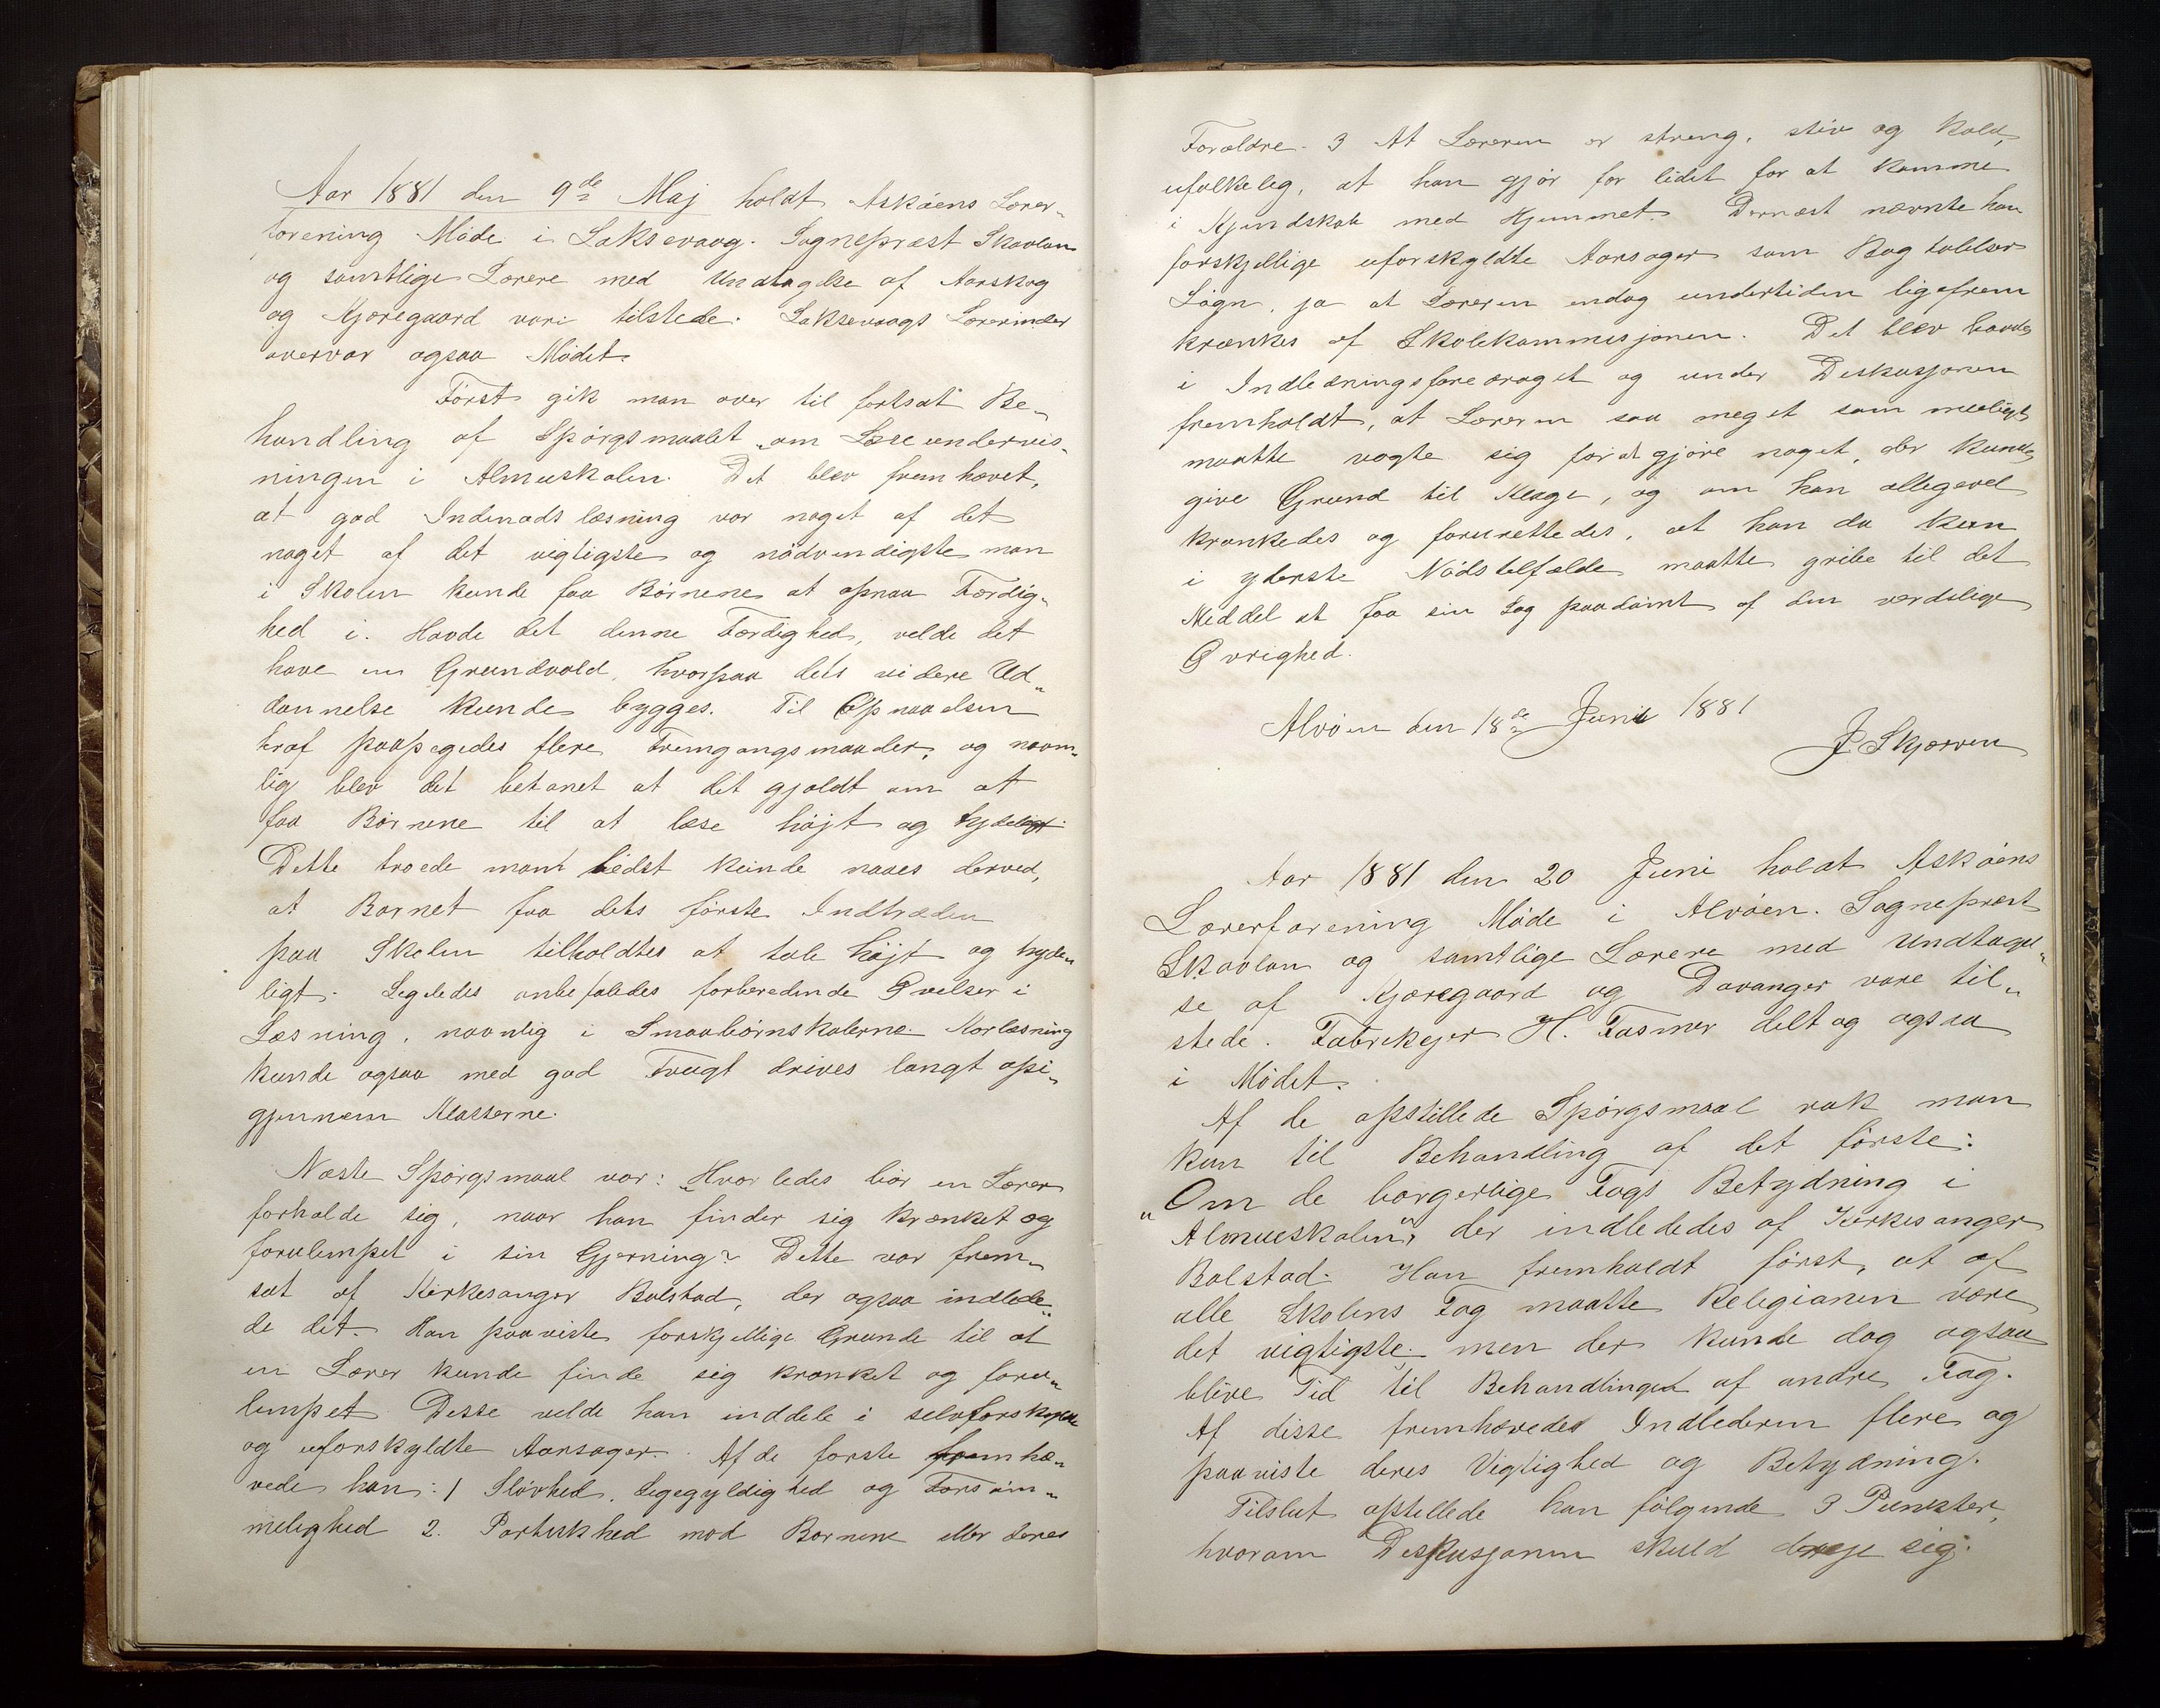 Aar 1881 den 9de Maj holdt Askøens Lærer-
forening Møde i Laksevaag. Sognepræst Skavlan
og samtlige Lærere med Undtagelse af Aarskog
og Kjæregaard vare tilstede. Laksevaags Lærerinder
overvar ogsaa Mødet.
Først gik man over til fortsat Be-
handling af Spørgsmaalet „om Læseundervis-
ningen i Almuskolen. Det blev fremhævet,
at god Indenadslæsning var noget af det
noget af det vigtigste og nødvendigste man
i Skolen kunde faa Børnene at opnaa Færdig-
hed i. Havde det denne Færdighed, vilde det
have en Grundvold, hvorpaa dets videre Ud-
dannelse kunde bygges. Til Opnaaelsen
heraf paapegedes flere Fremgangsmaader, og navn-
lig blev det betonet at det gjaldt om at
faa Børnene til at læse højt og tydeligt.
Dette troede man bedst kunde naaes derved,
at Barnet fra dets første Indtræden
paa Skolen tilholdtes at tale højt og tyde-
ligt. Ligeledes anbefaledes forberedende Øvelser i
Læsning, navnlig i Smaabørnskolerne. Korlæsning
kunde ogsaa med god Frugt drives langt opi-
gjennem Klasserne.
Næste Spørgsmaal var: „Hvorledes bør en Lærer
forholde sig, naar han finder sig krænket og
forulempet i sin Gjerning? Dette var frem-
sat af Kirkesanger Bolstad, der ogsaa indlede-
de det. Han paaviste forskjellige Grunde til at
en Lærer kunde finde sig krænket og foru-
lempet Disse vilde han inddele i selvforskyldte
og uforskyldte Aarsager. Af de første fremhæ-
vede han: 1 Sløvhed, Ligegyldighed og Forsøm-
melighed 2. Partiskhed mod Børnene eller deres
Forældre. 3 At Læreren er streng, stiv og kold,
ufolkelig, at han gjør for lidet for at komme
i Kjendskab med Hjemmet. Dernæst nævnte han
forskjellige uforskyldte Aarsager som Bagtalelser
Løgn, ja at Læreren endog undertiden ligefrem
krænkes af Skolekommisjonen. Det blev baade
i Indledningsforedraget og under Diskusjonen
fremholdt, at Læreren saa meget som muligt
maatte vogte sig for at gjøre noget, der kunde
give Grund til Klage, og om han alligevel
krænkedes og forurettedes, at han da kun
i yderste Nødstilfælde maatte gribe til det
Middel at faa sin Sag paadømt af den verdslige
Øvrighed.
Alvøen den 18de Juni 1881
J. Skjerven
Aar 1881 den 20 Juni holdt Askøens
Lærerforening Møde i Alvøen. Sognepræst
Skavlan og samtlige Lærere med Undtagel-
se af Kjæregaard og Davanger vare til-
stede. Fabrikejer H. Fasmer deltog ogsaa
i Mødet.
Af de opstillede Spørgsmaal rak man
kun til Behandling af det første:
„Om de borgerlige Fags Betydning i
Almueskolen", der indlededes af Kirkesanger
Bolstad. Han fremholdt først, at af
alle Skolens Fag maatte Religionen være
det vigtigste, men der kunde dog ogsaa
blive Tid til Behandlingen af andre Fag.
Af disse fremhævedes Indlederen flere og
paaviste deres Vigtighed og Betydning.
Tilslut opstillede han følgende 3 Punkter,
hvorom Diskusjonen skuld dreje sig.